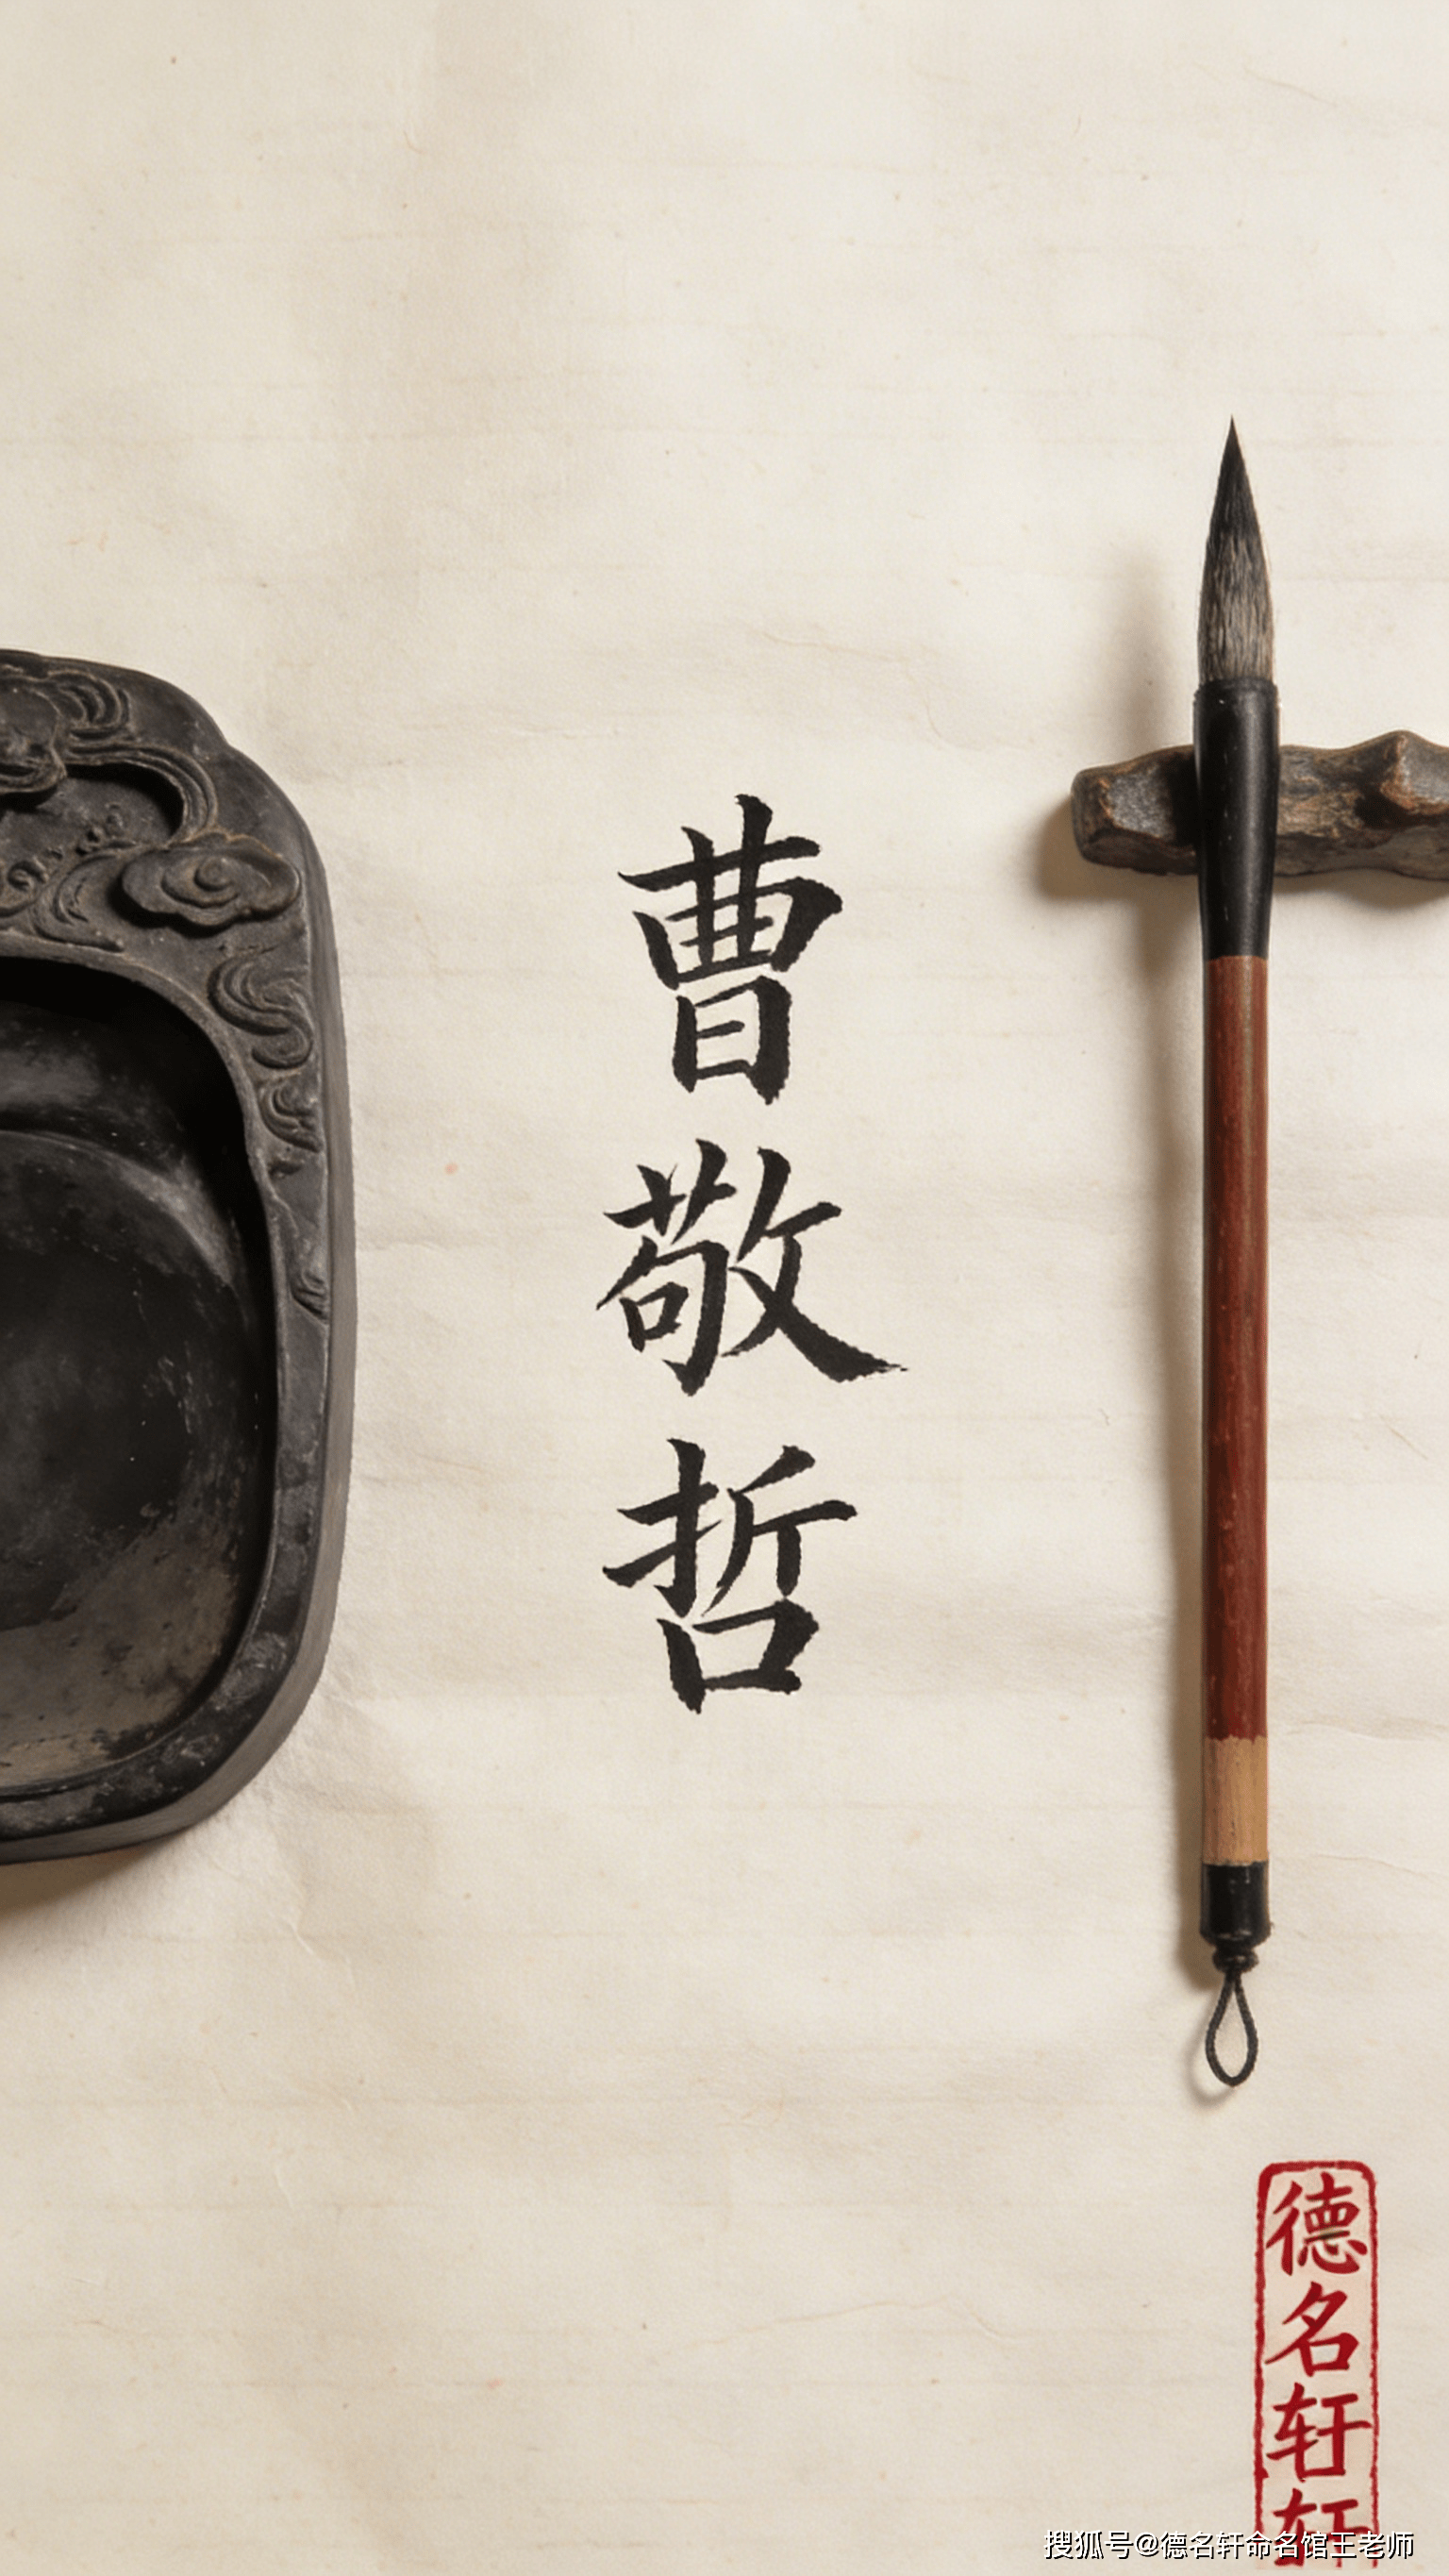 曹敬哲
德名轩轩
搜狐号@德名轩命名馆王老师